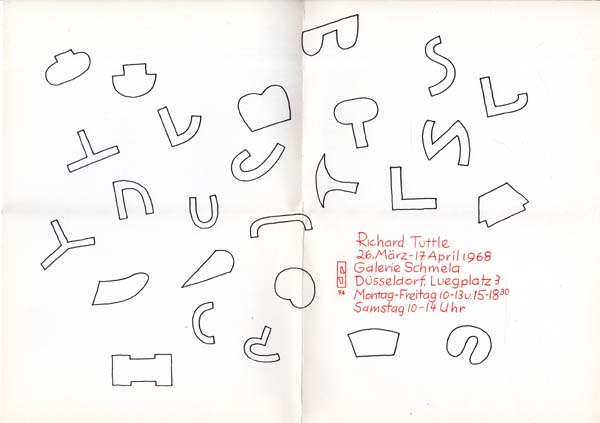 Richard Tuttle
26. März-17 April 1968
Galerie Schmela
Düsseldorf. Luegplatz 3
Montag-Freitag 10-13 u. 15-18³⁰
Samstag 10-14 Uhr